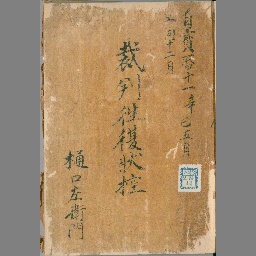 自寳暦十一年巳五月
同十二月
裁判往復状控
樋口左衛門